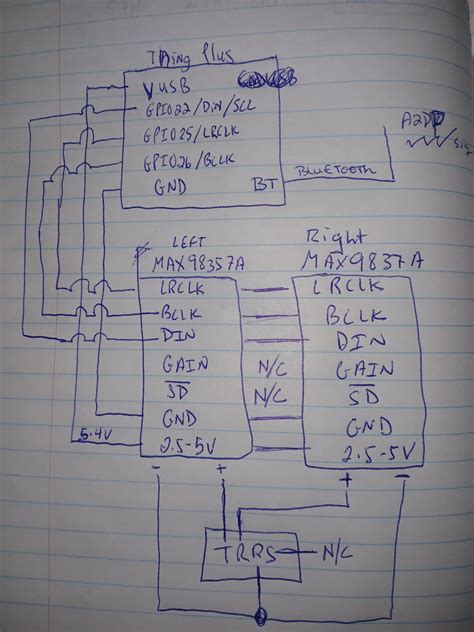 Thing Plus
VUSB
GPIO22/Din/SCL
GPIO25/LRCLK
GPIO26/BCLK
GND
BT
BLUETOOTH
A2DP
sig
LEFT
MAX98357A
Right
MAX9837A
LRCLK
LRCLK
BCLK
BCLK
DIN
DIN
GAIN
N/C
GAIN
SD
N/C
SD
GND
GND
5.4V
2.5-5V
2.5-5V
-
+
+
-
TRRS
N/C